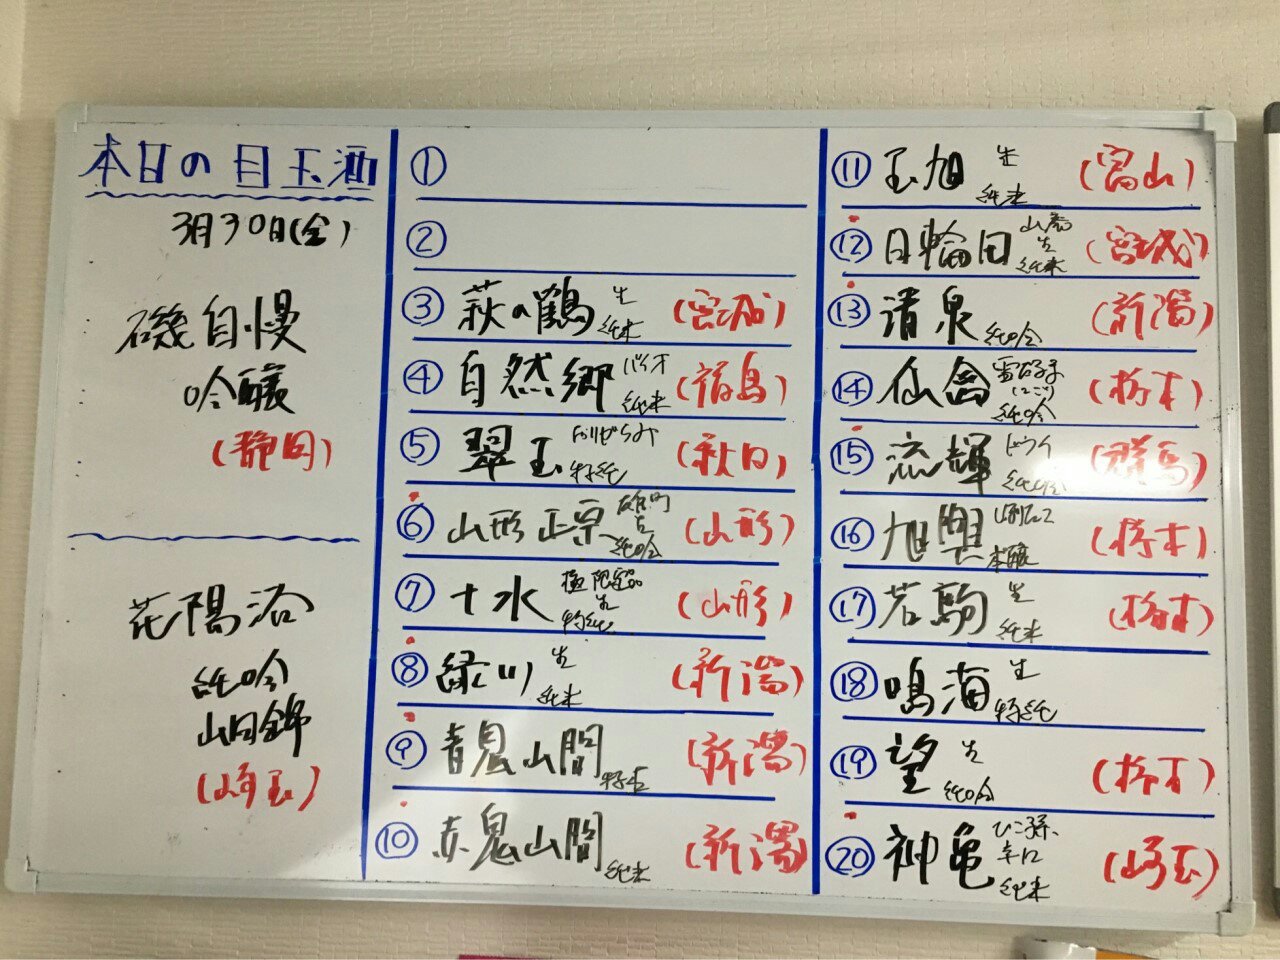 本日の目玉酒
3月30日(金)
磯自慢
吟醸
(静岡)
花陽浴
純吟
山田錦
(埼玉)
①
②
③ 萩の鶴 生 純米 (宮城)
④ 自然郷 バイオ 純米 (福島)
⑤ 翠玉 特純 (秋田)
⑥ 山形正宗 雄町 生 純吟 (山形)
⑦ 十水 極限定品 生 特純 (山形)
⑧ 緑川 生 純米 (新潟)
⑨ 青鬼山間 特吉 (新潟)
⑩ 赤鬼山間 純米 (新潟)
⑪ 玉旭 生 純米 (富山)
⑫ 日輪田 山廃 生 純米 (宮城)
⑬ 清泉 純吟 (新潟)
⑭ 仙禽 雪だるま (にごり) 純吟 (栃木)
⑮ 流輝 純吟 (群馬)
⑯ 旭興 本醸 (栃木)
⑰ 若駒 生 純米 (栃木)
⑱ 鳴海 生 特純
⑲ 望 生 純吟 (栃木)
⑳ 神亀 ひこ孫 純米 (埼玉)